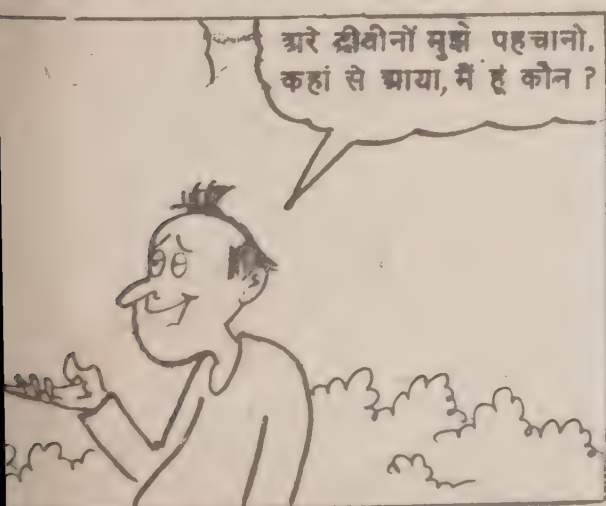 अरे दीवानों मुझे पहचानो,
कहां से आया, मैं हूं कौन ?